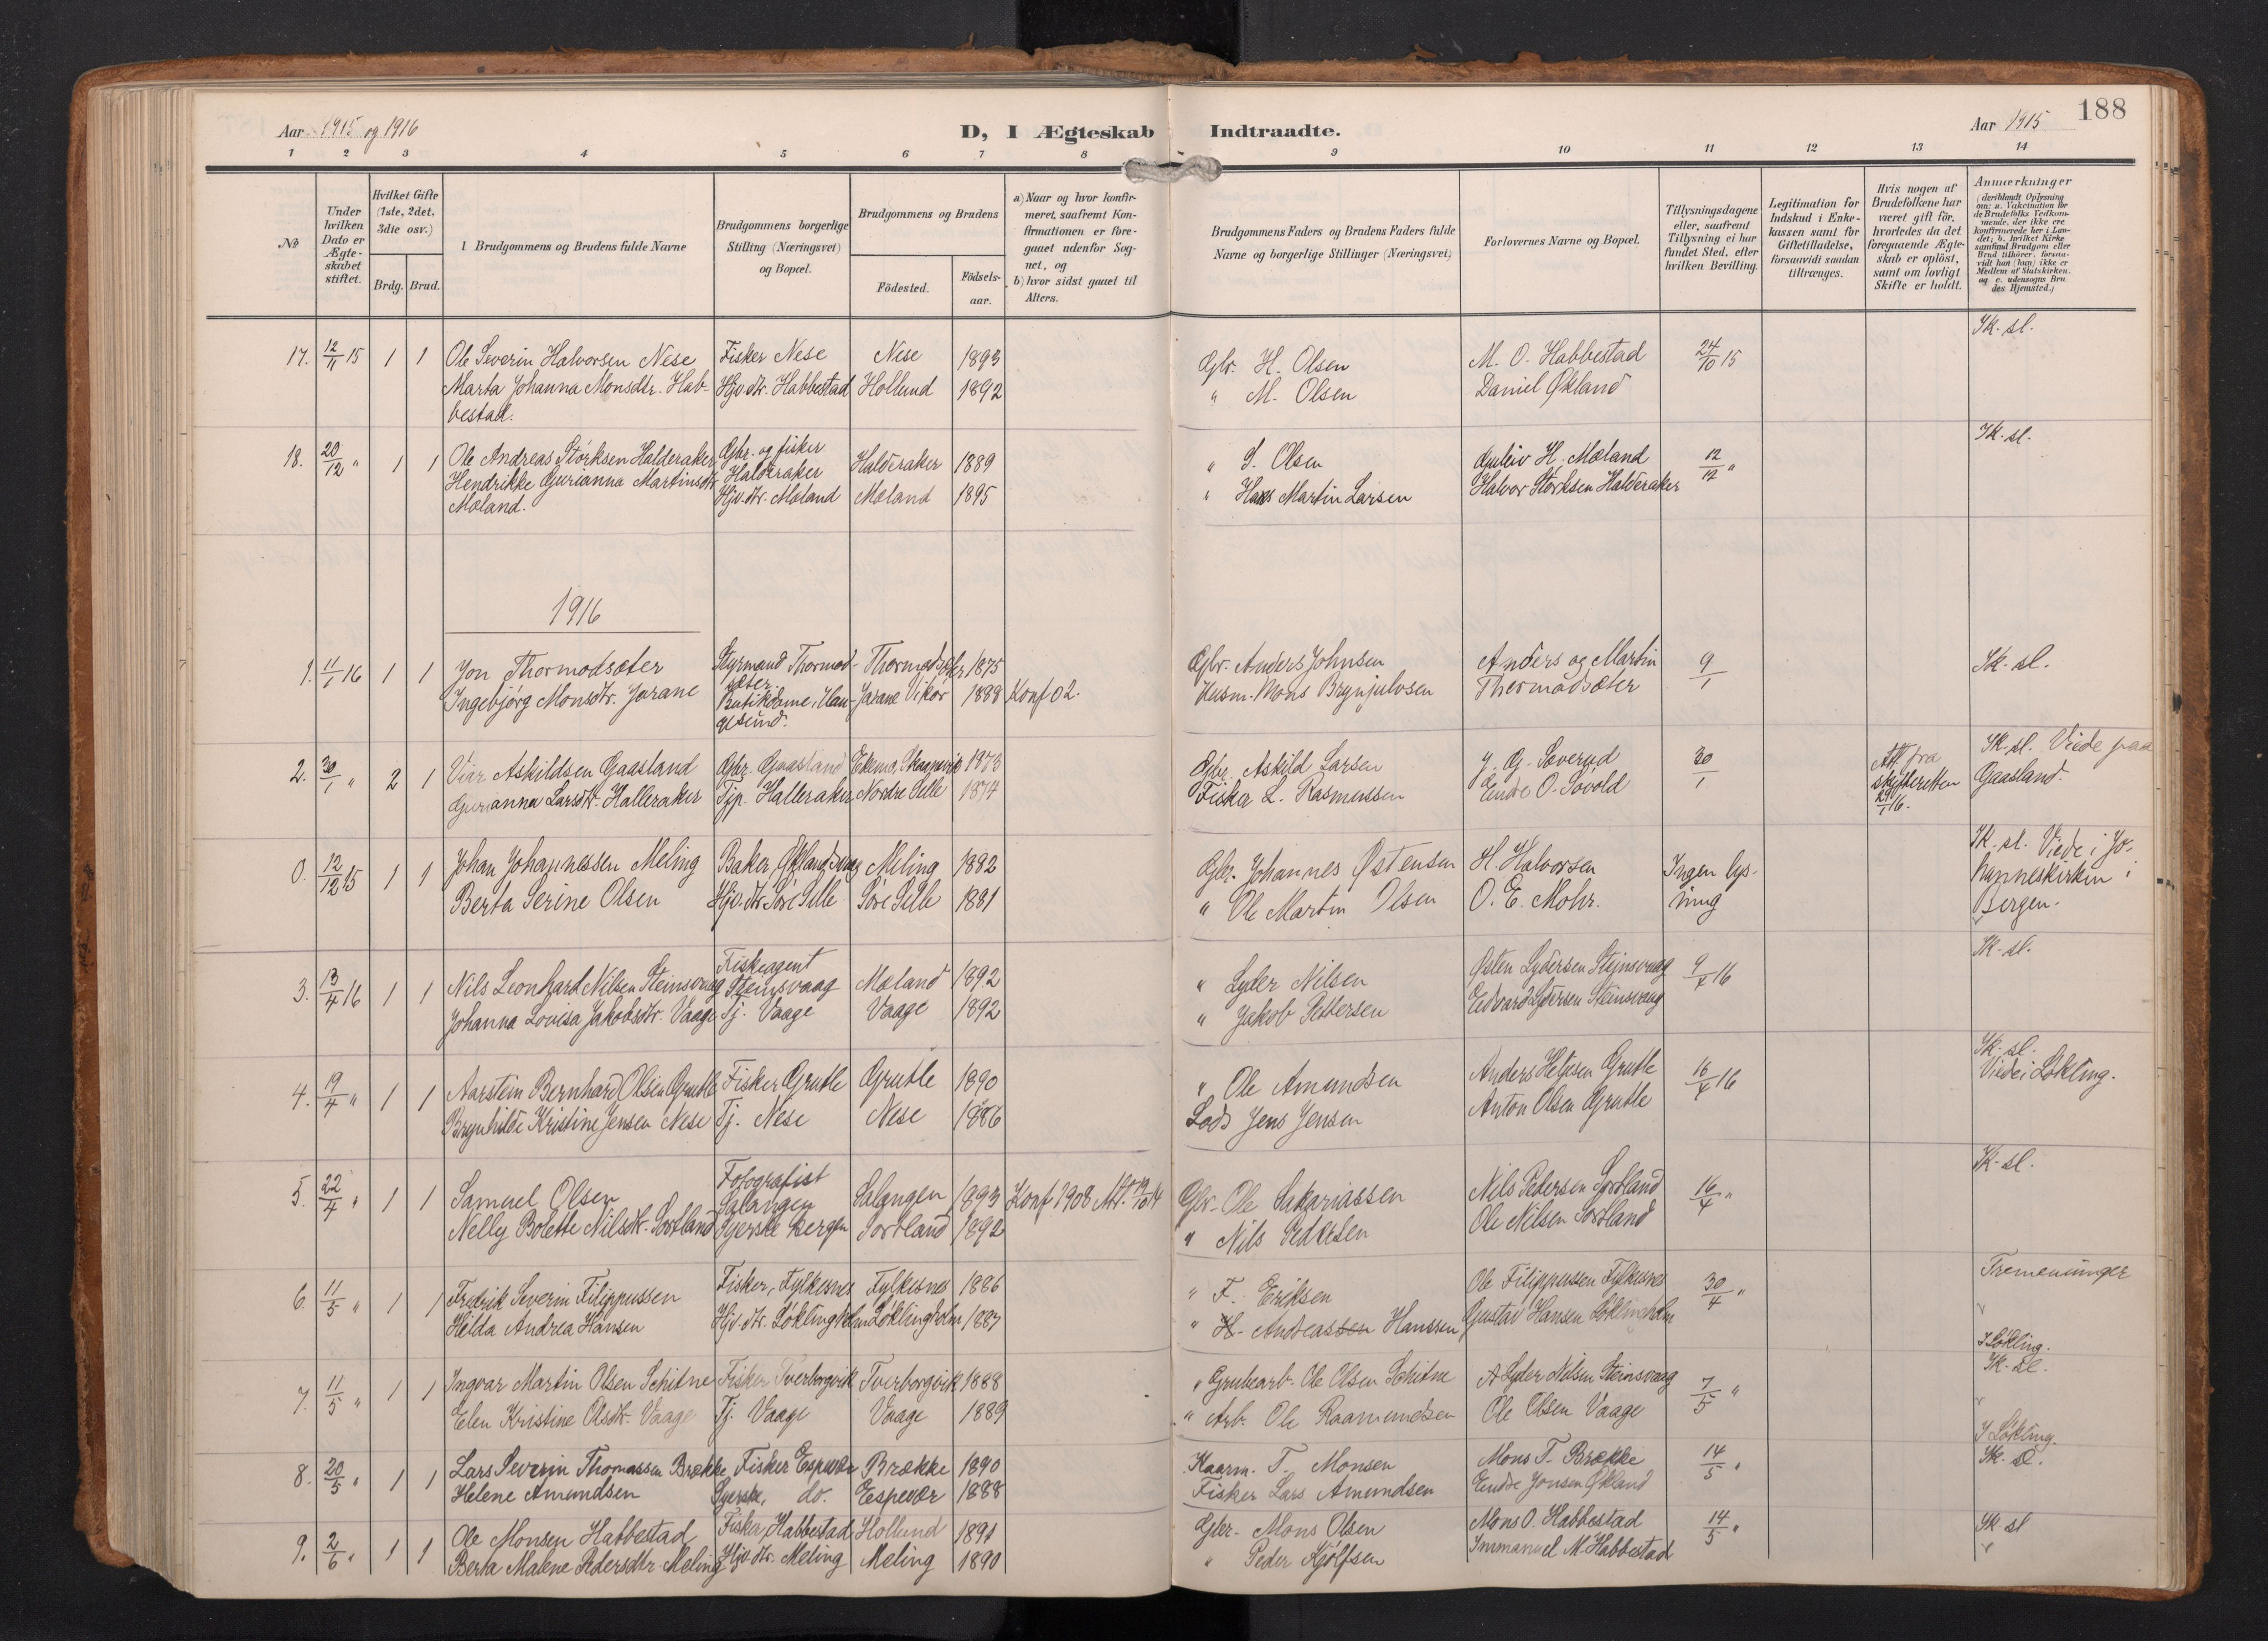 Aar 1915 og 1916
D, I Ægteskab Indtraadte.
Aar 1915
188
1 2 3 4 5 6 7 8 9 10 11 12 13 14
No
Under hvilken Dato er Ægteskabet stiftet.
Hvilket Gifte (1ste, 2det, 3die osv.)
Brdg. Brud.
1 Brudgommens og Brudens fulde Navne
Brudgommens borgerlige Stilling (Næringsvei) og Bopæl.
Brudgommens og Brudens
Födested.
Födsels-aar.
a) Naar og hvor konfirmeret, saafremt Konfirmationen er foregaaet udenfor Sognet, og
b) hvor sidst gaaet til Alters.
Brudgommens Faders og Brudens Faders fulde Navne og borgerlige Stillinger (Næringsvei)
Forlovernes Navne og Bopæl.
Tillysningsdagene eller, saafremt Tillysning ei har fundet Sted, efter hvilken Bevilling.
Legitimation for Indskud i Enkekassen samt for Giftetilladelse, forsaavidt saadan tiltrænges.
Hvis nogen af Brudefolkene har været gift för, hvorledes da det foregaaende Ægteskab er oplöst, samt om lovligt Skifte er holdt.
Anmærkninger
(deriblandt Oplysning om: a. Vakcination for de Brudefolks Vedkommende, der ikke ere konfirmerede her i Landet; b. hvilket Kirkesamfund Brudgom eller Brud tilhörer, forsaavidt han (hun) ikke er Medlem af Statskirken. og c. udensogns Brudes Hjemsted.)
17. 12/11 15 1 1 Ole Severin Halvorsen Nese Fisker Nese Nese 1893 Gbr. H. Olsen M. O. Habbestad 24/10 15 Sk. sl.
Marta Johanna Monsdtr. Hab- Hjv. dtr. Habbestad Hollund 1892 " M. Olsen Daniel Økland
bestad.
18. 20/12 " 1 1 Ole Andreas Størksen Halderaker Gbr. og fisker Halderaker Halderaker 1889 " S. Olsen Guleiv H. Mæland 12/12 " Sk. sl.
Hendrikke Gurianna Martinsdtr. Hjv. dtr. Mæland Mæland 1895 " Hans Martin Larsen Halvor Størksen Halderaker
Mæland.
1916
1. 11/1 16 1 1 Jon Thormodsæter Styrmand Thormod- Thormodsæter 1875 Gbr. Anders Johnsen Anders og Martin 9/1 Sk. sl.
sæter.
Ingebjørg Monsdtr. Jarane Butikdame, Hau- Jarane Vikør 1889 Konf 02. Husm. Mons Brynjulvsen Thormodsæter
gesund.
2. 30/1 " 2 1 Viar Askildsen Gaasland Gbr. Gaasland Ekemo, Skaanevik 1873 Gbr. Askild Larsen J. G. Severud 30/1 Att. fra skifteretten 29/1 16. Sk. sl. Viede paa Gaasland.
Gurianna Larsdtr. Halleraker Tjp. Halleraker Nordre Selle 1874 Fisker L. Rasmussen Endre O. Sovold
0. 12/12 15 1 1 Johan Johannessen Meling Baker, Øklandsvaag Meling 1882 Gbr. Johannes Østensen H. Halvorsen Ingen lys- Sk. sl. Viede i Jo-
Berta Serine Olsen Hjv. dtr. Søre Selle Søre Selle 1881 " Ole Martin Olsen O. E. Mohr. ning hanneskirken i Bergen.
3. 13/4 16 1 1 Nils Leonhard Nilsen Steinsvaag Fiskeagent Steinsvaag Mæland 1892 " Lyder Nilsen Østen Lydersen Steinsvaag 9/4 16 Sk. sl.
Johanna Lovisa Jakobsdtr. Vaage Tj. Vaage Vaage 1892 " Jakob Pettersen Edvard Lydersen Steinsvaag
4. 19/4 " 1 1 Aarstein Bernhard Olsen Grutle Fisker Grutle Grutle 1890 " Ole Amundsen Anders Helgesen Grutle 16/4 16 Sk. sl. Viede i Løkling.
Brynhilde Kristine Jensen Nese Tj. Nese Nese 1886 Lods Jens Jensen Anton Olsen Grutle
5. 22/4 " 1 1 Samuel Olsen Fotografist Salangen Salangen 1893 Konf 1908 Att. 19/10 14 Gbr. Ole Sakariassen Nils Pedersen Sortland 16/4 " Sk. sl.
Nelly Bolette Nilsdtr. Sortland Syerske Bergen Sortland 1892 " Nils Pedersen Ole Nilsen Sortland
6. 11/5 " 1 1 Fredrik Severin Filippussen Fisker, Fylkesnes Fylkesnes 1886 " F. Eriksen Ole Filippussen Fylkesnes 30/4 " Tremenninger
Hilda Andrea Hansen Hjv. dtr. Løklingholm Løklingholm 1887 " H. Andreassen Hanssen Gustav Hansen Løklingholm I Løkling.
7. 11/5 " 1 1 Ingvar Martin Olsen Schitne Fisker Tverborgvik Tverborgvik 1888 " Grubearb. Ole Olsen Schitne A Lyder Nilsen Steinsvaag 7/5 " Sk. sl.
Elen Kristine Olsdtr. Vaage Tj. Vaage Vaage 1889 " Arb. Ole Raamundsen Ole Olsen Vaage I Løkling.
8. 20/5 " 1 1 Lars Severin Thomassen Brække Fisker Espevær Brække 1890 Kaarm. T. Monsen Mons T. Brække 14/5 " Sk. sl.
Helene Amundsen Syerske, do. Espevær 1888 Fisker Lars Amundsen Endre Jonsen Økland
9. 2/6 " 1 1 Ole Monsen Habbestad Fisker, Habbestad Hollund 1891 Gbr. Mons Olsen Mons O. Habbestad 14/5 " Sk sl
Berta Malene Pedersdtr. Meling Hjv. dtr. Meling Meling 1890 " Peder Kjølfsen Immanuel M. Habbestad